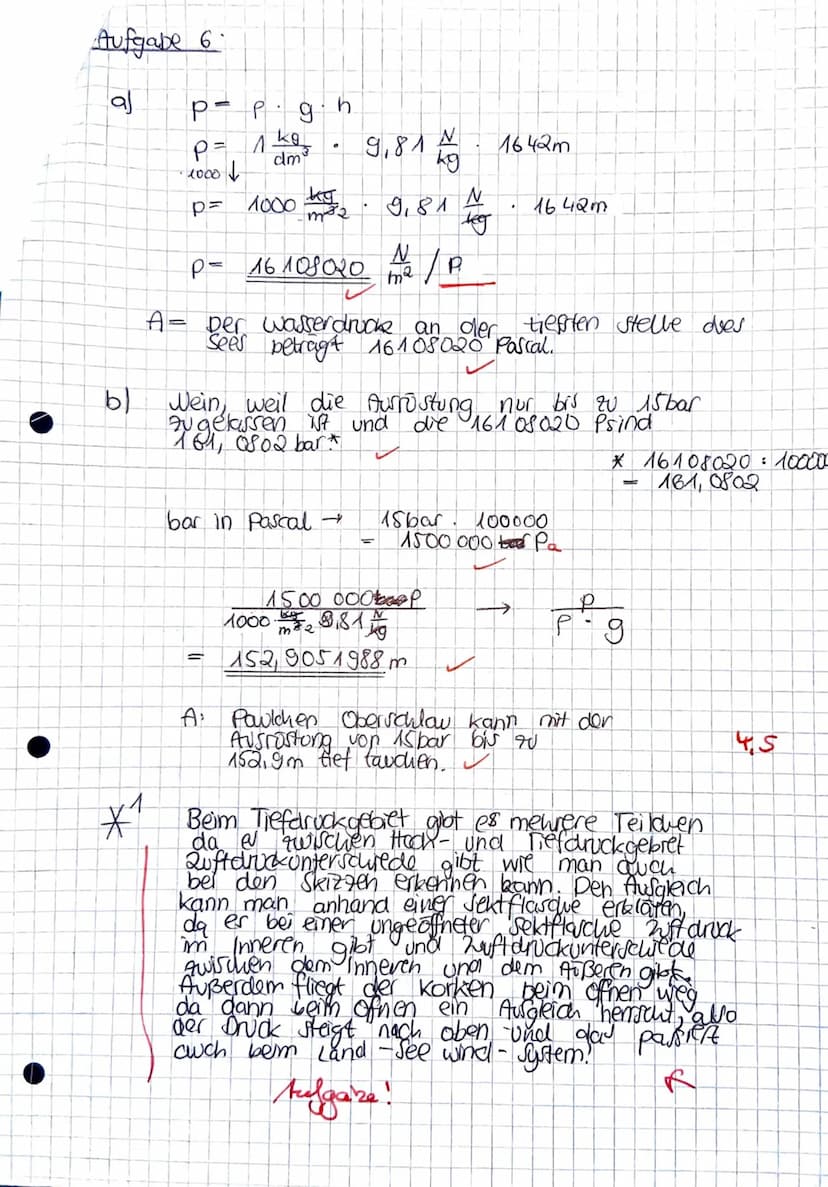 Aufgabe 6:
a) p = ρ · g · h
p = 1 kg/dm³ · 9,81 N/kg · 1642m
·1000 ↓
p = 1000 kg/m³2 · 9,81 N/kg · 1642m
p = 16108020 N/m² / P
A = Der Wasserdrucke an der tiefsten stelle des
Sees beträgt 16108020 Pascal.
b) Nein, weil die Ausrüstung nur bis zu 15bar
zugelassen ist und die 16108020 P sind
161,0802 bar.*
* 16108020 : 100000
= 161,0802
bar in Pascal → 15bar · 100000
= 1500 000 bar Pa
1500 000 bar P / 1000 kg/m³2 · 9,81 N/kg → p / ρ · g
= 152,9051988 m
A: Paulchen Oberschlau kann mit der
Ausrüstung von 15bar bis zu
152,9m tief tauchen.
4,5
*1 Beim Tiefdruckgebiet gibt es mehrere Teilchen
da es zwischen Hoch- und Tiefdruckgebiet
Luftdruckunterschiede gibt wie man auch
bei den Skizzen erkennen kann. Den Ausgleich
kann man anhand einer Sektflasche erklären,
da es bei einer ungeöffneter Sektflasche Luftdruck
im Inneren gibt und Luftdruckunterschiede
zwischen dem Inneren und dem Äußeren gibt.
Außerdem fliegt der Korken beim öffnen weg
da dann beim öffnen ein Ausgleich herrscht, also
der Druck steigt nach oben und das passiert
auch beim Land-See wind-System!
Aufgabe!
R